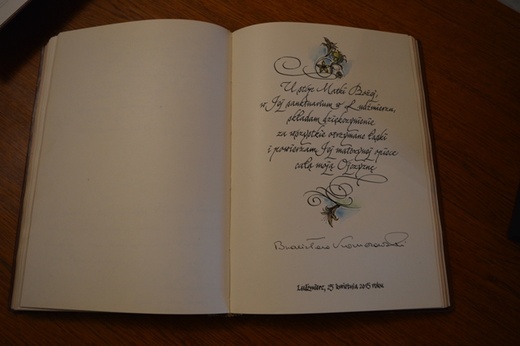 U stóp Matki Bożej,
w Jej sanktuarium w Ludźmierzu,
składam dziękczynienie
za wszystkie otrzymane łaski
i powierzam Jej matczynej opiece
całą moją Ojczyznę
Bronisław Komorowski
Ludźmierz, 25 kwietnia 2015 roku